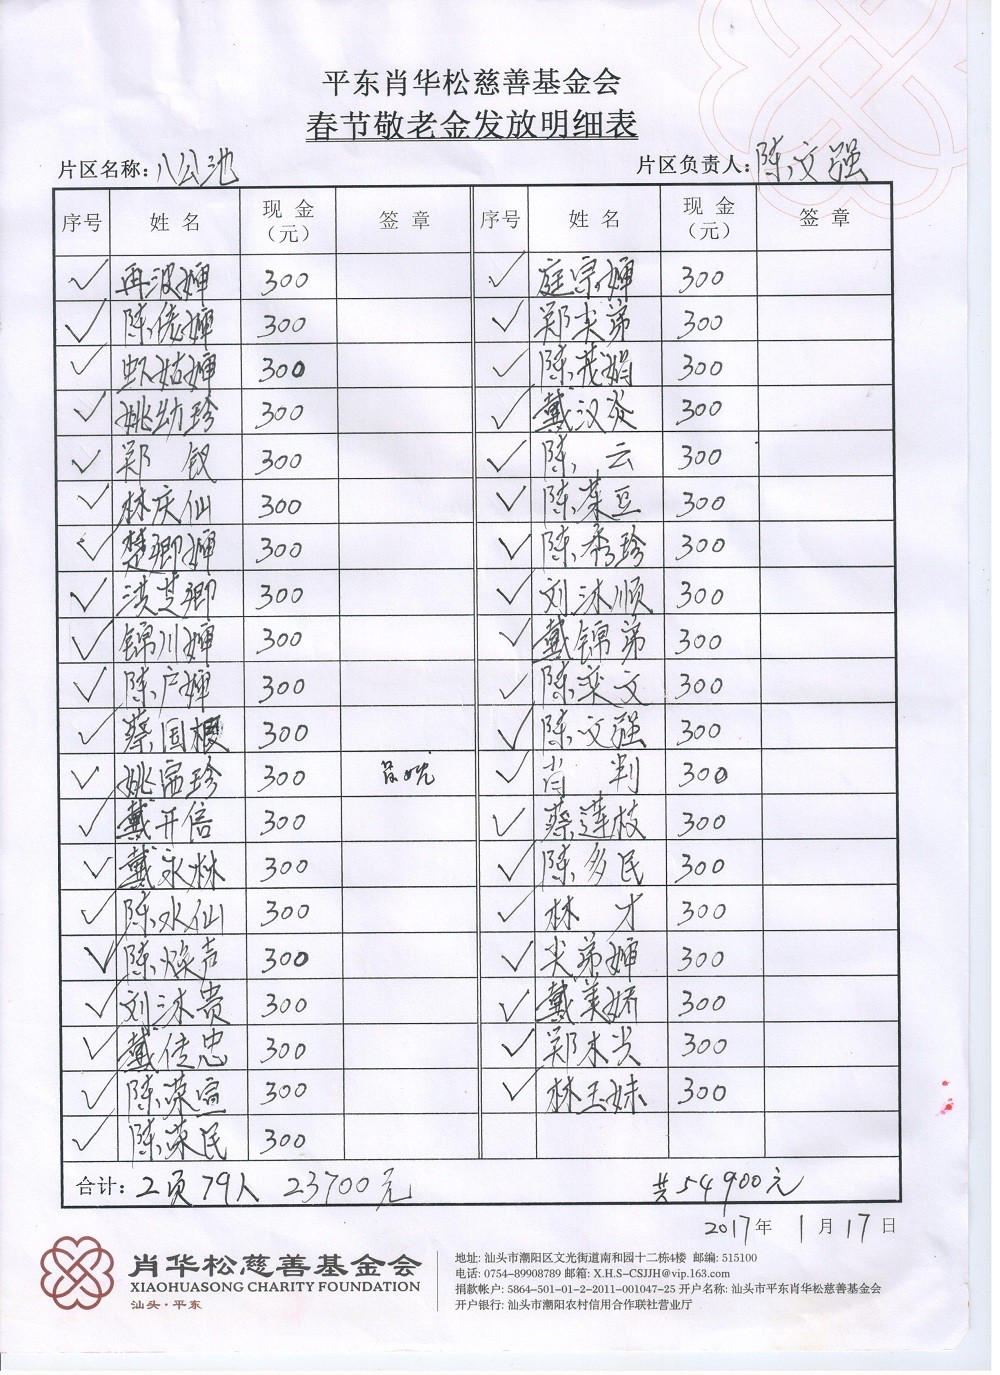 平东肖华松慈善基金会
春节敬老金发放明细表
片区名称：八公池 片区负责人：陈文强
序号 姓名 现金（元） 签章 序号 姓名 现金（元） 签章
✓ 再波婶 300 ✓ 庭宗婶 300
✓ 陈億婶 300 ✓ 郑尖弟 300
✓ 姑婶 300 ✓ 陈茂娟 300
✓ 姚幼珍 300 ✓ 戴汉 300
✓ 郑 钗 300 ✓ 陈 云 300
✓ 林庆仙 300 ✓ 陈菜豆 300
✓ 楚卿婶 300 ✓ 陈秀珍 300
✓ 洪芝卿 300 ✓ 刘沐顺 300
✓ 锦川婶 300 ✓ 戴锦弟 300
✓ 陈户婶 300 ✓ 陈奕文 300
✓ 蔡国樱 300 ✓ 陈文强 300
✓ 姚富珍 300 ✓ 肖 判 300
✓ 戴开信 300 ✓ 蔡莲枝 300
✓ 戴永林 300 ✓ 陈多民 300
✓ 陈水仙 300 ✓ 林 才 300
✓ 陈焕声 300 ✓ 尖弟婶 300
✓ 刘沐贵 300 ✓ 戴美娇 300
✓ 戴佳忠 300 ✓ 郑木尖 300
✓ 陈荣宣 300 ✓ 林玉妹 300
✓ 陈荣民 300
合计：2页79人 23700元 共54900元
2017年1月17日
肖华松慈善基金会
XIAOHUASONG CHARITY FOUNDATION
汕头·平东
地址: 汕头市潮阳区文光街道南和园十二栋4楼 邮编: 515100
电话: 0754-89908789 邮箱: X.H.S-CSJJH@vip.163.com
捐款帐户: 5864-501-01-2-2011-001047-25 开户名称: 汕头市平东肖华松慈善基金会
开户银行: 汕头市潮阳农村信用合作联社营业厅